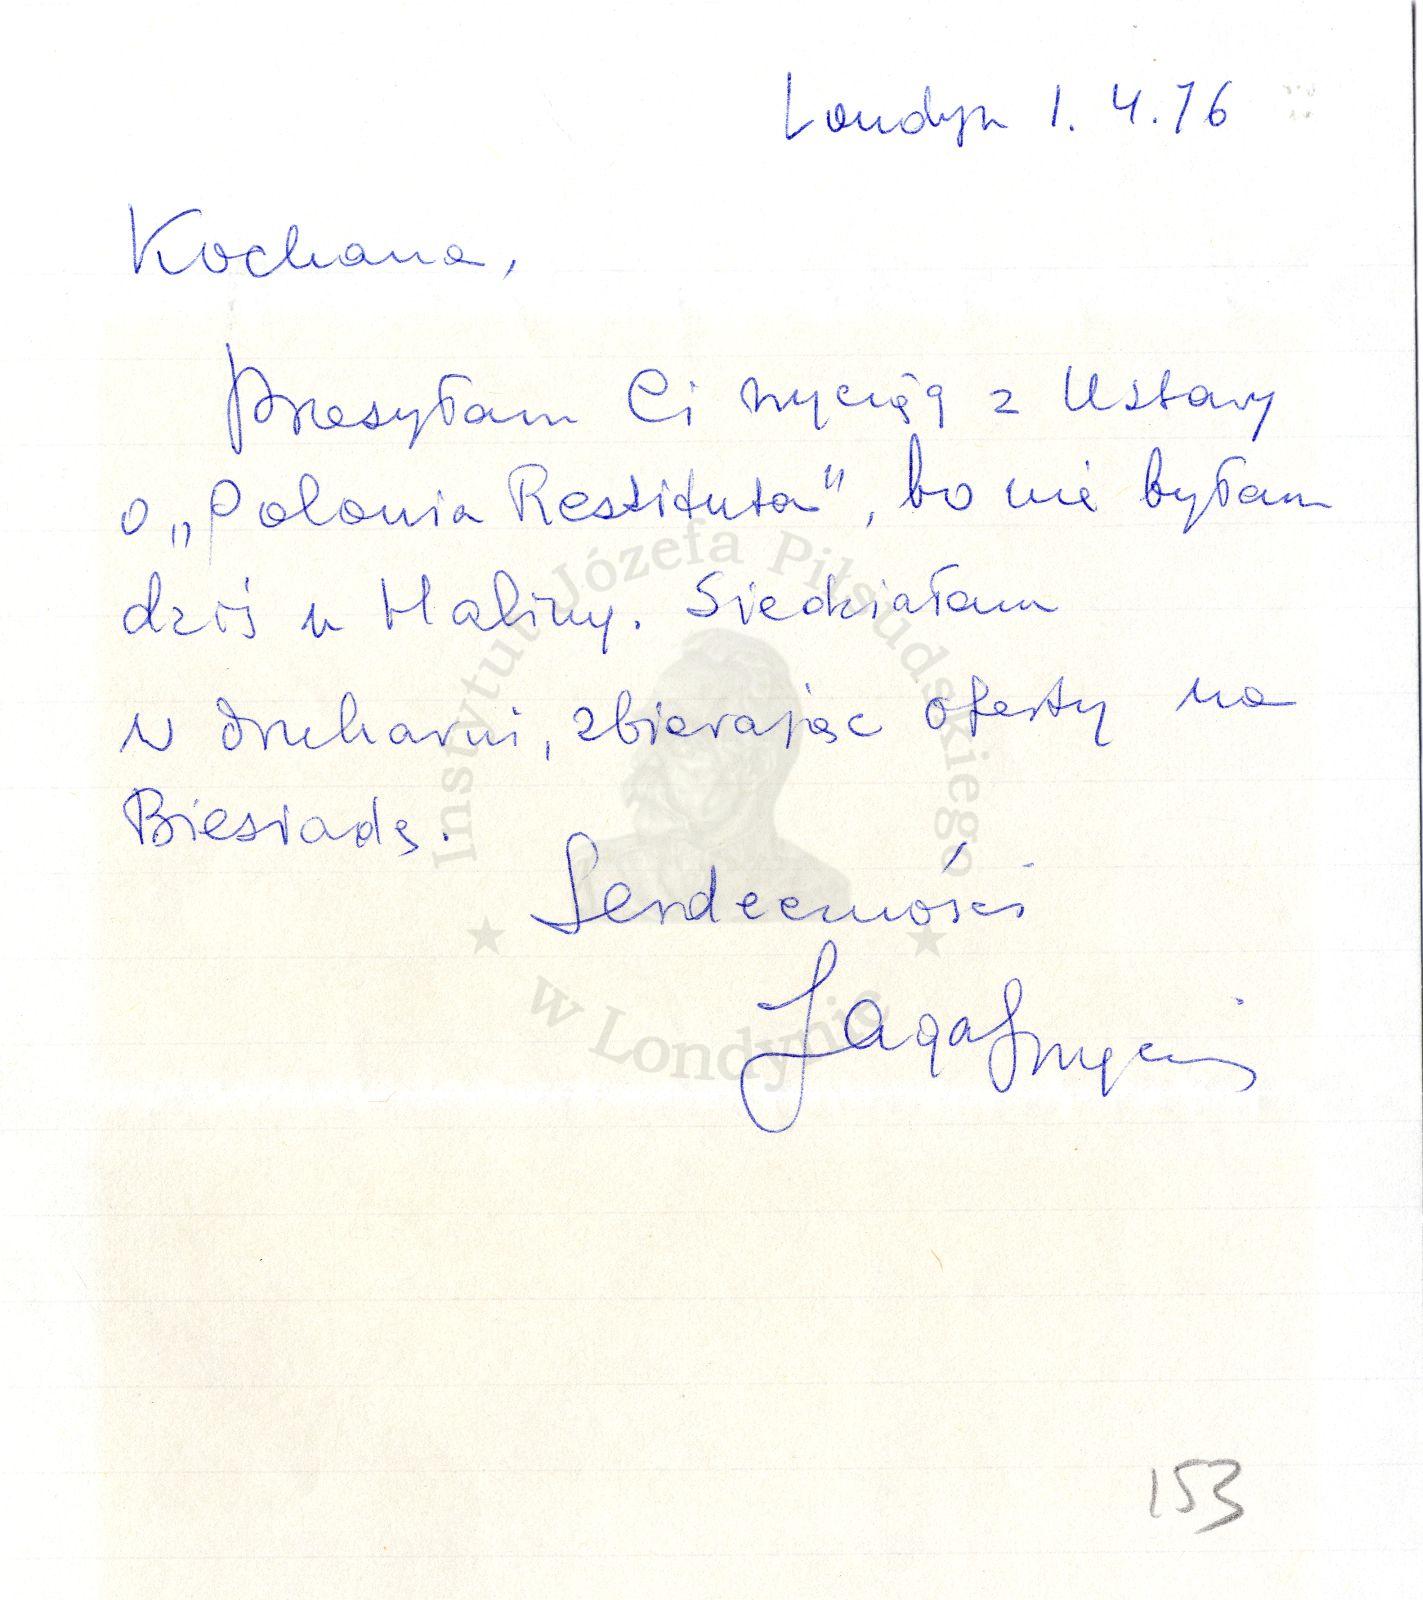 Londyn 1.4.76
Kochana,
Przesyłam Ci wyciąg z Ustawy
o „Polonia Restituta", bo nie byłam
dziś u Haliny. Siedziałam
w drukarni, zbierając oferty na
Biesiadę.
Serdeczności
Jaga
Instytut Józefa Piłsudskiego
w Londynie
153